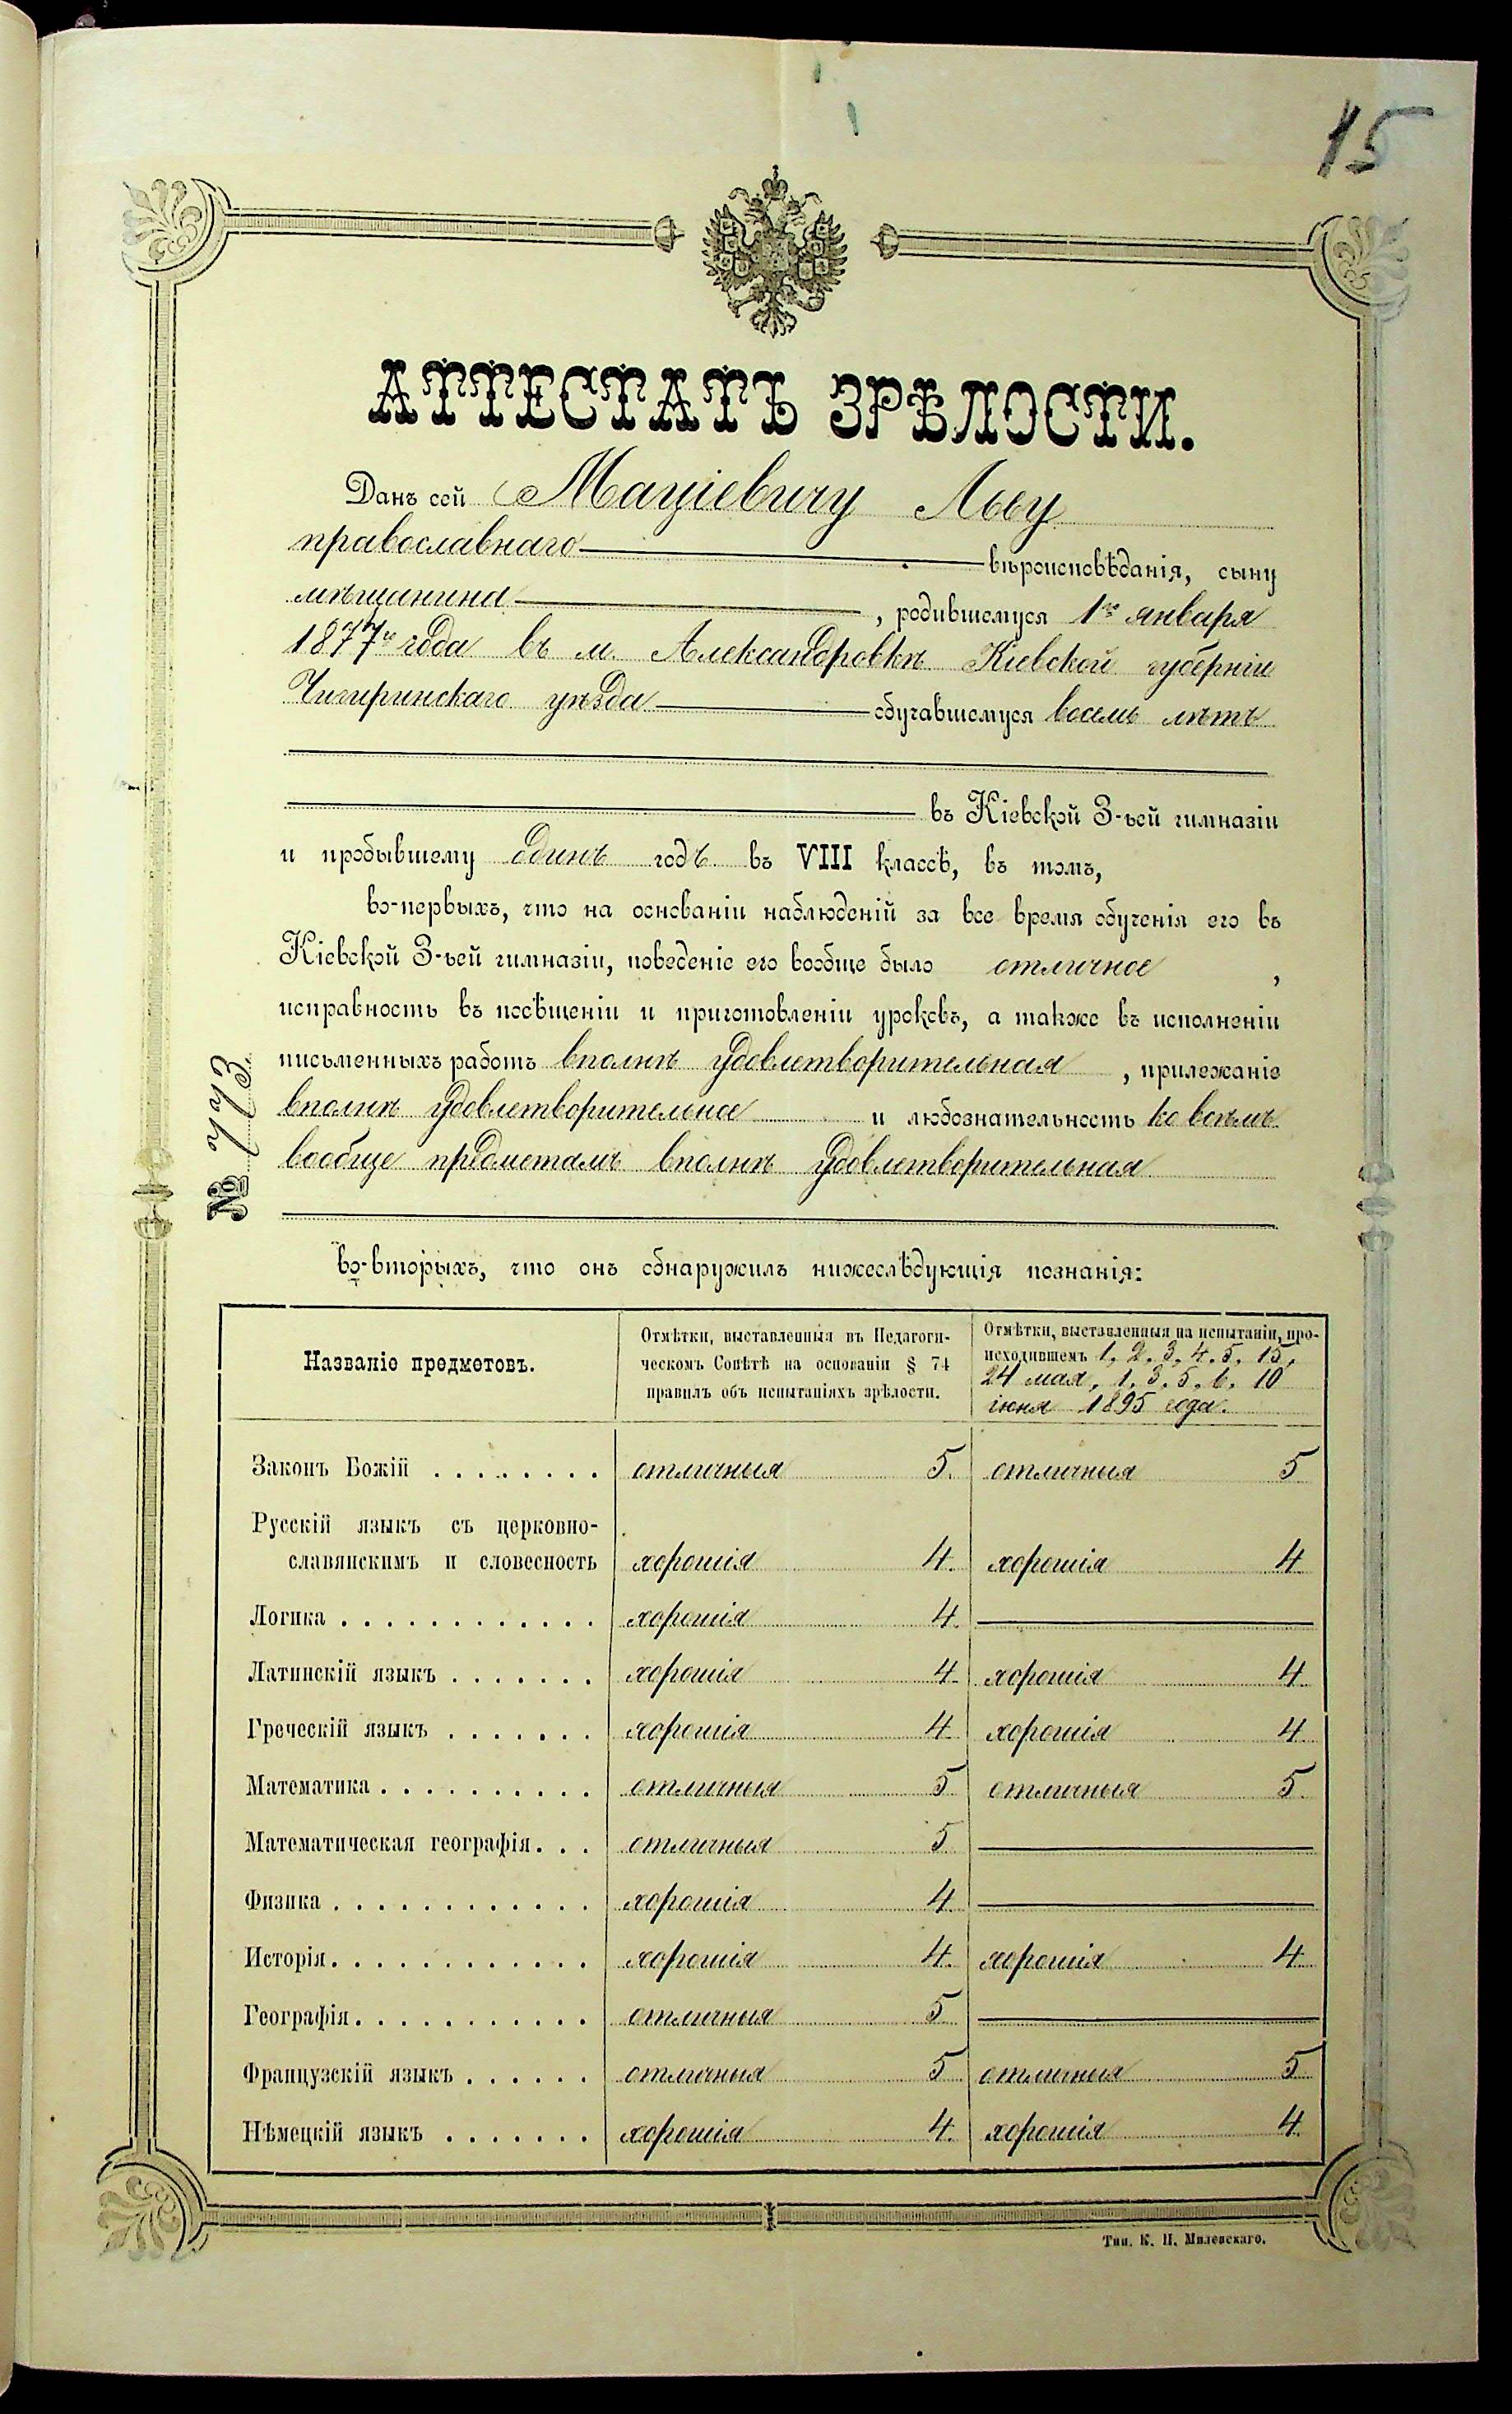 15
АТТЕСТАТЪ ЗРѢЛОСТИ.
Данъ сей Маціевичу Льву
православнаго вѣроисповѣданія, сыну
мѣщанина, родившемуся 1го января
1877го года въ м. Александровкѣ Кіевской губерніи
Чигиринскаго уѣзда обучавшемуся восемь лѣтъ
въ Кіевской 3-ьей гимназіи
и пробывшему одинъ годъ въ VIII классѣ, въ томъ,
во-первыхъ, что на основаніи наблюденій за все время обученія его въ
Кіевской 3-ьей гимназіи, поведеніе его вообще было отличное,
исправность въ посѣщеніи и приготовленіи уроковъ, а также въ исполненіи
письменныхъ работъ вполнѣ удовлетворительная, прилежаніе
вполнѣ удовлетворительное и любознательность ко всѣмъ
вообще предметамъ вполнѣ удовлетворительная
№ 773
во-вторыхъ, что онъ обнаружилъ нижеслѣдующія познанія:
Названіе предметовъ.
Отмѣтки, выставленныя въ Педагоги-
ческомъ Совѣтѣ на основаніи § 74
правилъ объ испытаніяхъ зрѣлости.
Отмѣтки, выставленныя на испытаніи, про-
исходившемъ 1, 2, 3, 4, 5, 15,
24 мая, 1, 3, 5, 6, 10
іюня 1895 года.
Законъ Божій . . . . . . . . отличныя 5. отличныя 5
Русскій языкъ съ церковно-
славянскимъ и словесность хорошія 4. хорошія 4
Логика . . . . . . . . . . . . хорошія 4.
Латинскій языкъ . . . . . . . хорошія 4 хорошія 4
Греческій языкъ . . . . . . . хорошія 4 хорошія 4
Математика . . . . . . . . . . отличныя 5 отличныя 5.
Математическая географія. . . отличныя 5
Физика . . . . . . . . . . . . хорошія 4
Исторія. . . . . . . . . . . . хорошія 4. хорошія 4
Географія. . . . . . . . . . . отличныя 5
Французскій языкъ . . . . . . отличныя 5 отличныя 5
Нѣмецкій языкъ . . . . . . . хорошія 4. хорошія 4.
Тип. К. Н. Милевскаго.